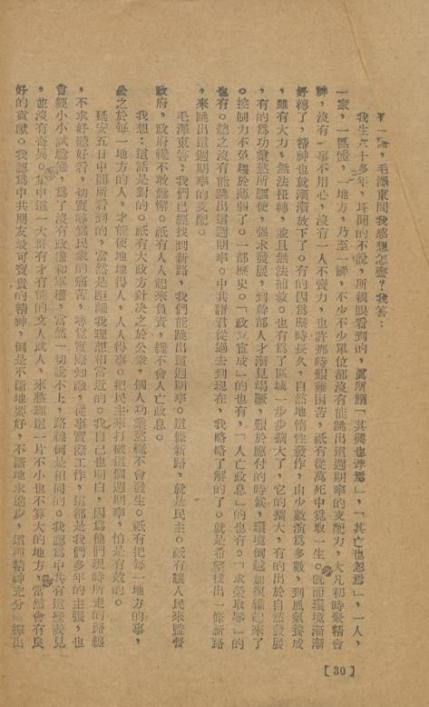 有一回，毛澤東問我感想怎麼？我答：
我生六十多年，耳聞的不說，所親眼看到的，眞所謂「其興也浡焉」，「其亡也忽焉」，一人，
一家，一團體，一地方，乃至一國，不少不少單位都沒有能跳出這週期率的支配力，大凡初時聚精會
神，沒有一事不用心，沒有一人不賣力，也許那時艱難困苦，祇有從萬死中覓取一生。既而環境漸漸
好轉了，精神也就漸漸放下了。有的因爲歷時長久，自然地惰性發作，由少數演爲多數，到風氣養成
，雖有大力，無法扭轉，並且無法補救。也有爲了區域一步步擴大了，它的擴大，有的出於自然發展
，有的爲功業欲所驅使，強求發展，到幹部人才漸見竭蹶，艱於應付的時候，環境倒越加複雜起來了
。控制力不免趨於薄弱了。一部歷史，「政怠宦成」的也有，「人亡政息」的也有，「求榮取辱」的
也有。總之沒有能跳出這週期率。中共諸君從過去到現在，我略略了解的了。就是希望找出一條新路
，來跳出這週期率的支配。
毛澤東答：我們已經找到新路，我們能跳出這週期率。這條新路，就是民主。祇有讓人民來監督
政府，政府纔不敢鬆懈。祇有人人起來負責，纔不會人亡政息。
我想：這話是對的。祇有大政方針決之於公衆，個人功業欲纔不會發生。祇有把每一地方的事，
公之於每一地方的人，才能使地地得人，人人得事。把民主來打破這個週期率，怕是有效的。
延安五日中間所看到的，當然是距離我理想相當近的。我自己也明白，因爲他們現時所走的路線
，不求好聽好看，切實尋覓民衆的痛苦，尋覓實際知識，從事實際工作，這都是我們多年的主張，也
曾經小小試驗過，爲了沒有政權和軍權，當然一切說不上，路線倒是相同的。我認爲中共有這些表見
，並沒有奇異。集中這一大群有才有能的文人武人，來整理這一片不小也不算大的地方，當然會有良
好的貢獻。我認爲中共朋友最可寶貴的精神，倒是不斷地要好，不斷地求進步，這種精神充分發揮出
【30】